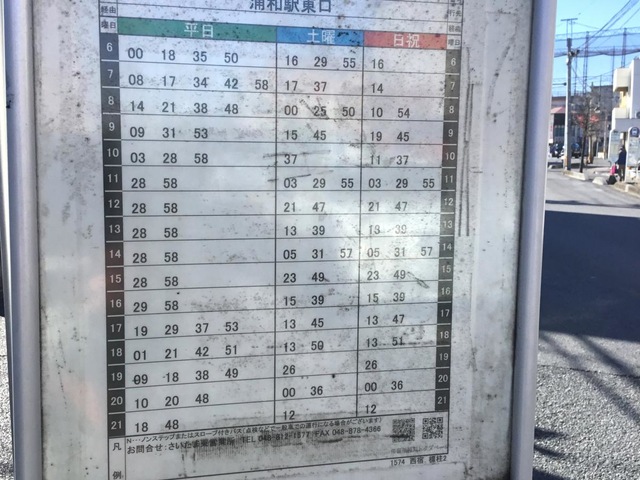 浦和駅東口
経由 曜日 平日 土曜 日祝 曜日
6 00 18 35 50 16 29 55 16 6
7 08 17 34 42 58 17 37 14 7
8 14 21 38 48 00 25 50 10 54 8
9 09 31 53 15 45 19 45 9
10 03 28 58 37 11 37 10
11 28 58 03 29 55 03 29 55 11
12 28 58 21 47 21 47 12
13 28 58 13 39 13 39 13
14 28 58 05 31 57 05 31 57 14
15 28 58 23 49 23 49 15
16 29 58 15 39 15 39 16
17 19 29 37 53 13 45 13 47 17
18 01 21 42 51 13 50 13 51 18
19 09 18 38 49 26 26 19
20 10 20 48 00 36 00 36 20
21 18 48 12 12 21
凡例
N…ノンステップまたはスロープ付きバス(点検などで一般車での運行になる場合がございます)
お問合せ：さいたま東営業所 TEL 048-812-1577 FAX 048-878-4386
1574 西宿